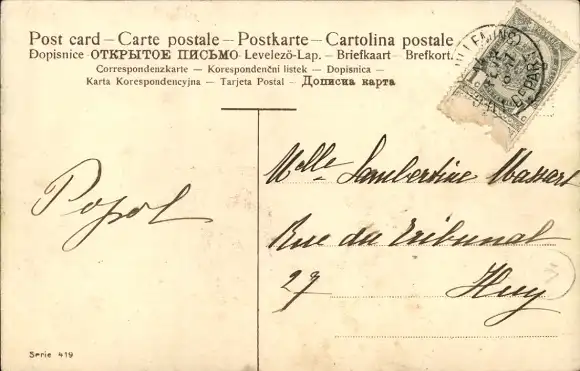 Post card – Carte postale – Postkarte – Cartolina postale
Dopisnice – ОТКРЫТОЕ ПИСЬМО – Levelező-Lap. – Briefkaart – Brefkort.
Correspondenzkarte – Korespondenční listek – Dopisnica –
Karta Korespondencyjna – Tarjeta Postal – Дописна карта
Popol
Melle Lambertine Massart
Rue du Tribunal
27 Huy
Serie 419